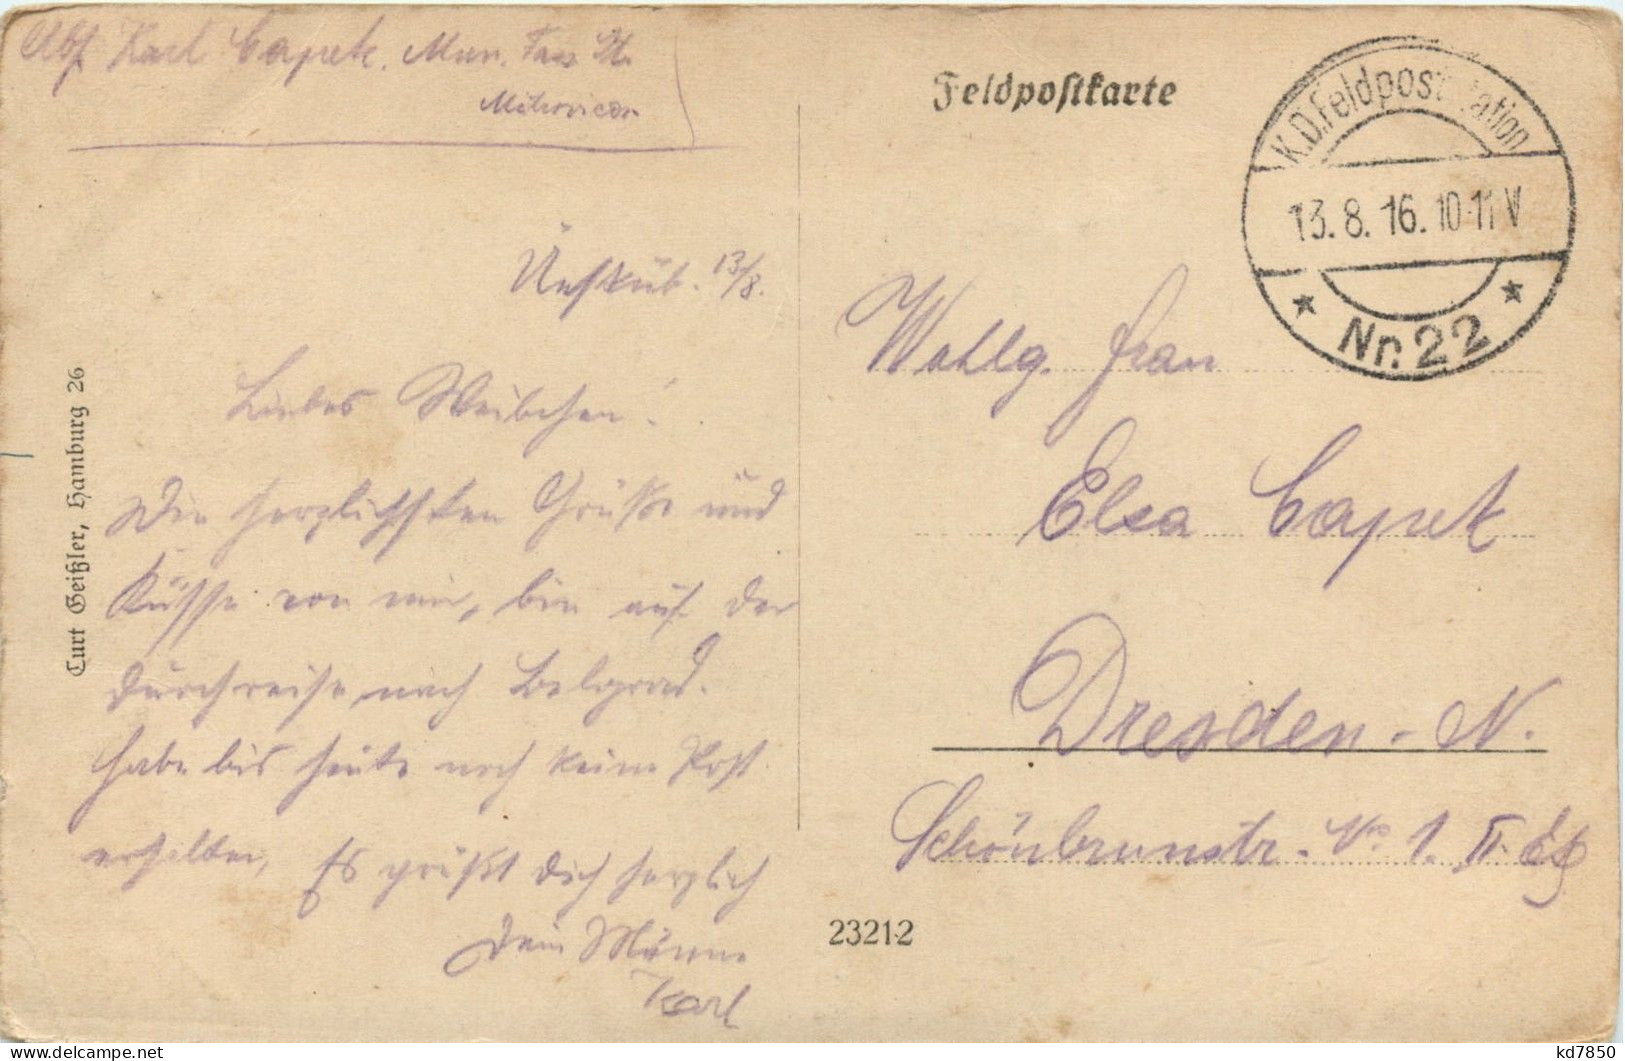 Abs. Karl Capek. Mun.
Mitrovica
Üesküb. 13/8.
Liebes Weibchen!
Die herzlichsten Grüße und
Küsse von mir, bin auf der
Durchreise nach Belgrad.
habe bis heute noch keine Post
erhalten, Es grüßt dich herzlich
Dein Männe
Karl
Curt Geißler, Hamburg 26
Feldpostkarte
K.D. Feldpoststation
13.8.16. 10-11 V
* Nr. 22 *
Wohlg. Frau
Elsa Capek
Dresden-N.
Schönbrunnstr. No 1. II.
23212
kd7850